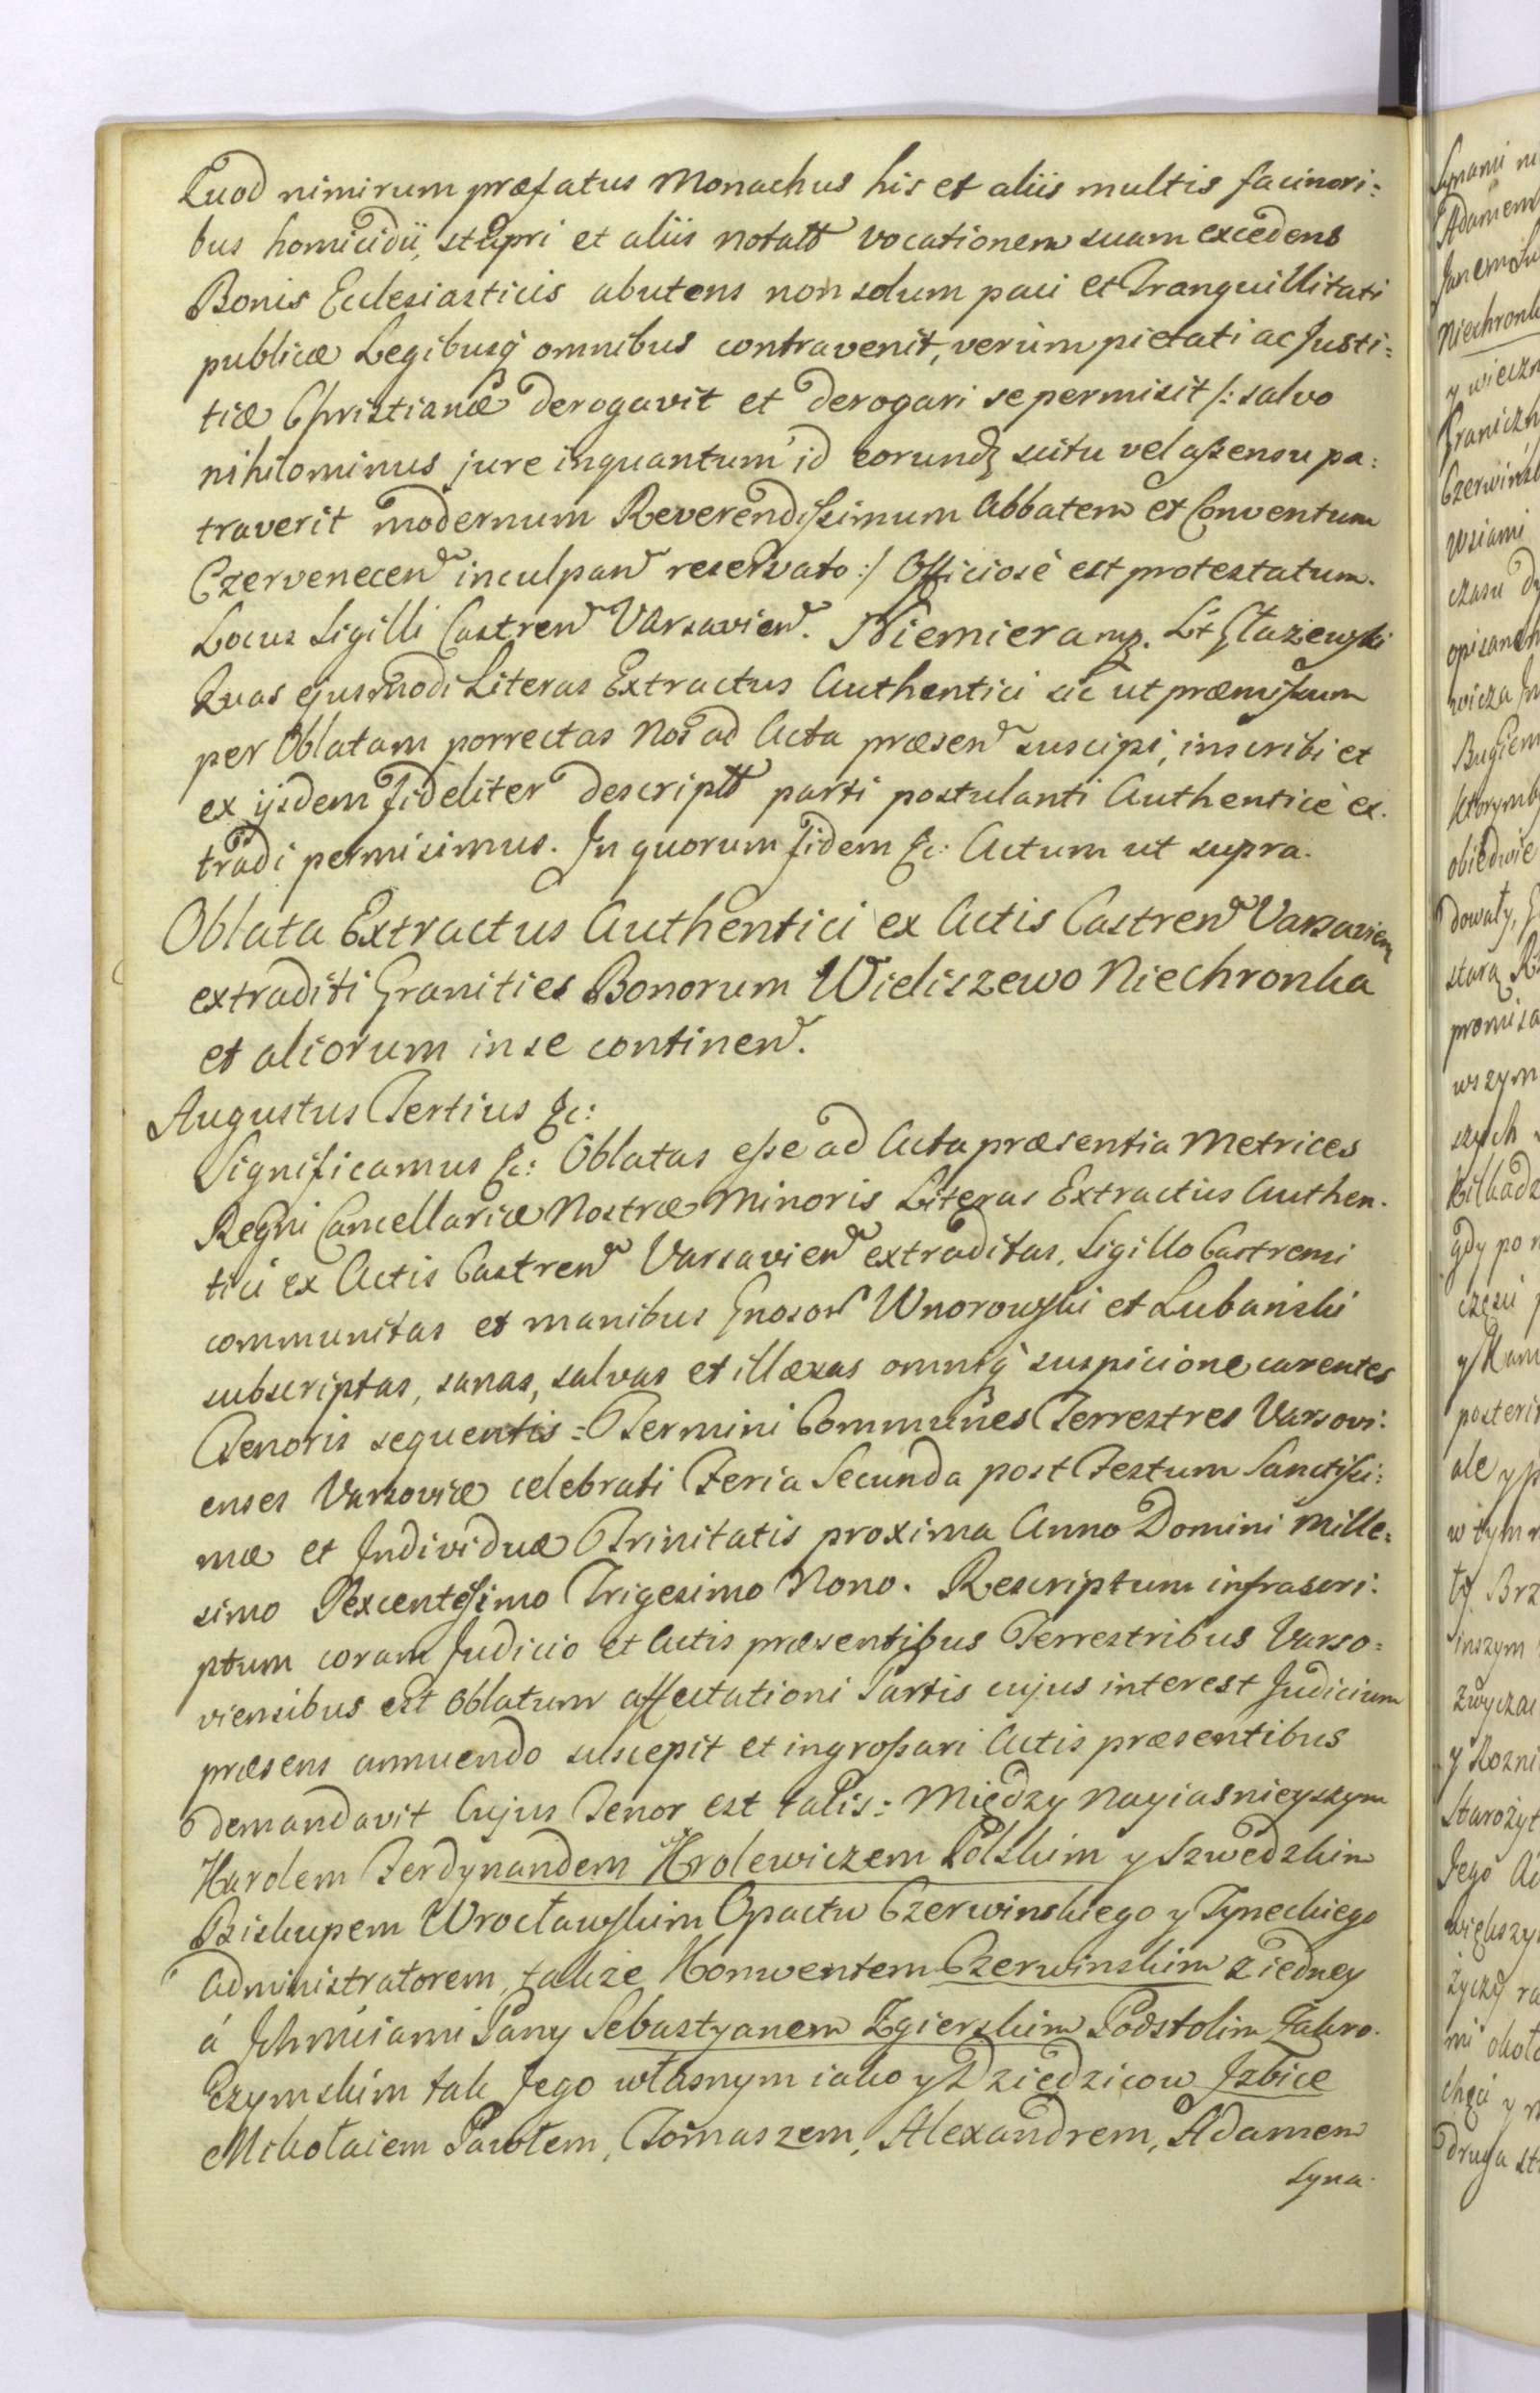 Quod nimirum præfatus Monachus his et aliis multis facinori:
bus homicidii, stupri et aliis notatt vocationem suam excedens
Bonis Ecclesiasticis abutens non solum paci et Tranquillitati
publicæ Legibusq omnibus contravenit, verùm pietati ac Justi:
tiæ Christianæ derogavit et derogari se permisit /: salvo
nihilominus jure inquantum id eorundq scitu vel assensu pa:
traverit modernum Reverendissimum Abbatem et Conventum
Czervenecen inculpan reservato :/ Officiosè est protestatum.
Locus Sigilli Castren Varsavien. Niemiera mp.
Quas ejusmodi Literas Extractus Authentici sic ut præmissum
per Oblatam porrectas Nos ad Acta præsen suscipi, inscribi et
ex ijsdem fideliter descriptt parti postulanti Authenticè ex.
tradi permisimus. In quorum fidem &c: Actum ut supra.
Oblata Extractus Authentici ex Actis Castren Varsavien
extraditi Granities Bonorum Wieliszewo Niechronka
et aliorum in se continen.
Augustus Tertius &c:
Significamus &c: Oblatas esse ad Acta præsentia Metrices
Regni Cancellariæ Nostræ Minoris Literas Extractûs Authen.
tici ex Actis Castren Varsavien extraditas, Sigillo Castrensi
communitas et manibus Gnosor Wnorowski et Lubański
subscriptas, sanas, salvas et illæsas omniq suspicione carentes
Tenoris sequentis = Termini Communes Terrestres Varsovi:
enses Varsoviæ celebrati Feria Secunda post Festum Sanctissi:
mæ et Individuæ Trinitatis proxima Anno Domini Mille:
simo Sexcentesimo Trigesimo Nono. Rescriptum infrascri:
ptum coram Judicio et Actis præsentibus Terrestribus Varso=
viensibus est oblatum affectationi Partis cujus interest Judicium
præsens annuendo suscepit et ingrossari Actis præsentibus
demandavit Cujus Tenor est talis: Między Nayiasnieyszym
Karolem Ferdynandem Krolewiczem Polskim y Szwedzkim
Biskupem Wrocławskim Opactw Czerwinskiego y Tyneckiego
Administratorem, także Konwentem Czerwinskim z iedney
á Jchmściami Pany Sebastyanem Zgierskim Podstolim Zakro.
czymskim tak Jego własnym iako y Dziedzicow Jzbice
Mikołaiem Pawłem, Tomaszem, Alexandrem, Adamem
Syna.